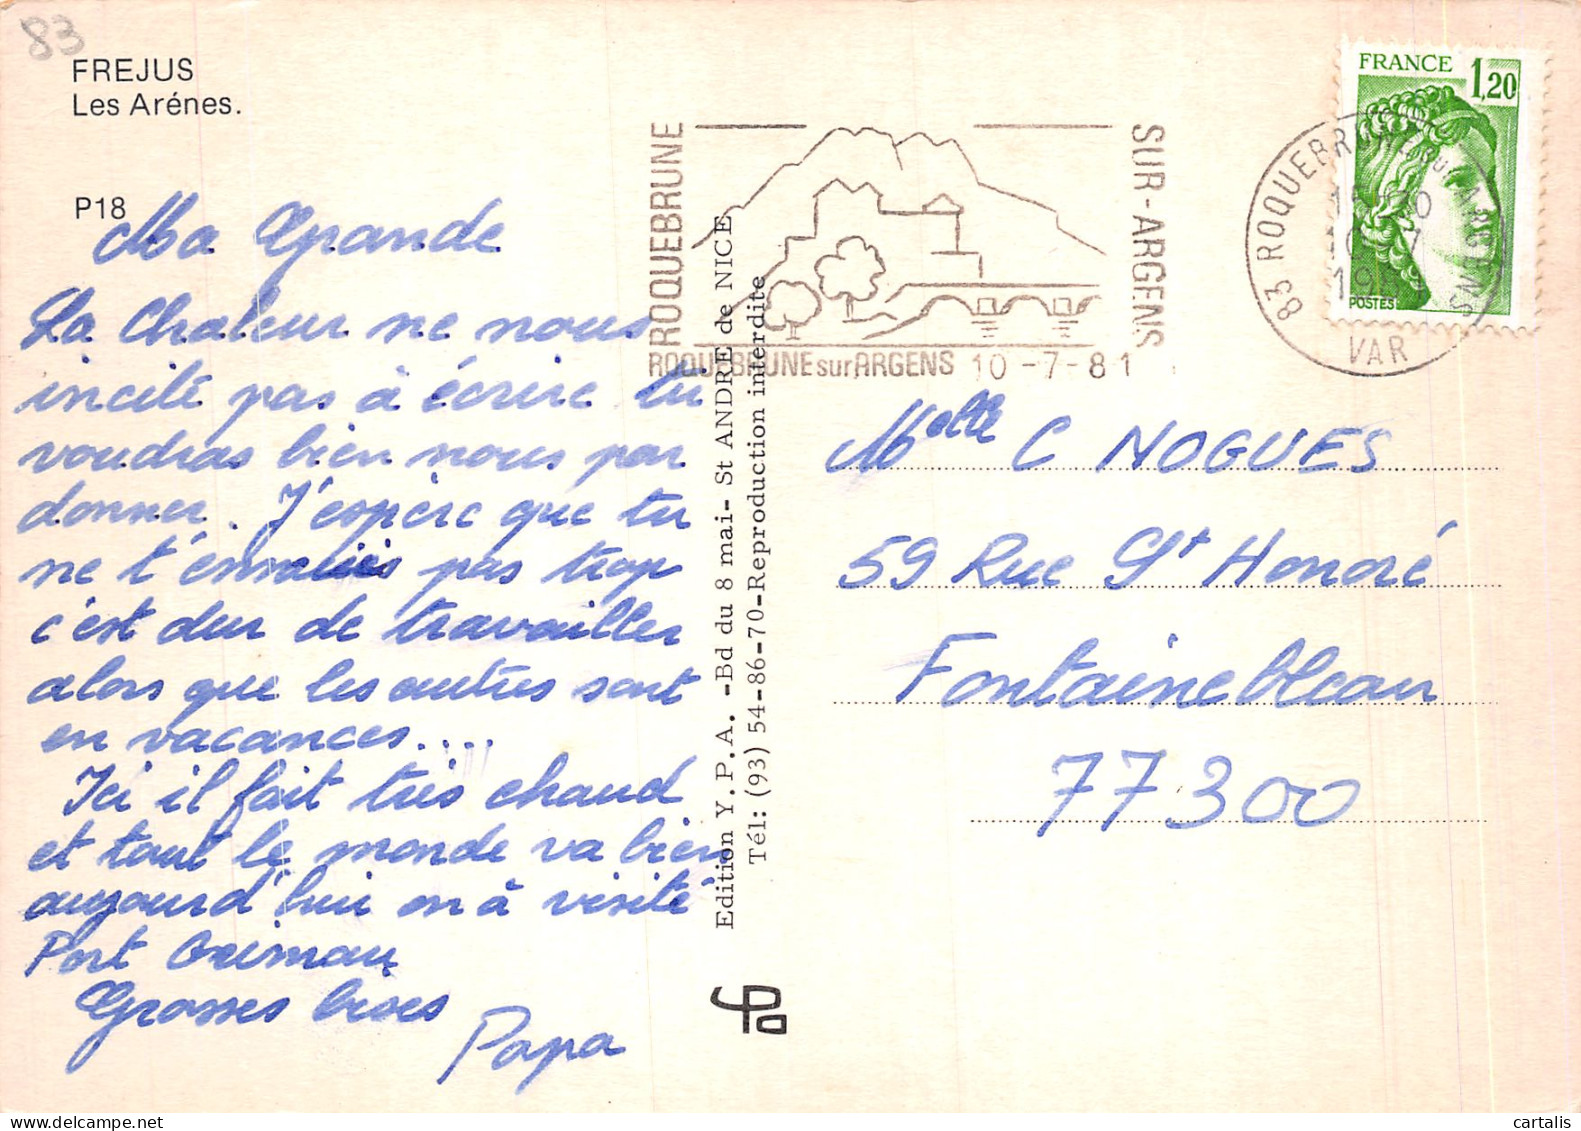 83
FREJUS
Les Arénes.
P18
Ma Grande
La Chaleur ne nous
incite pas à écrire tu
voudras bien nous par
donner. J'espère que tu
ne t'ennuies pas trop
c'est dur de travailler
alors que les autres sont
en vacances....
Ici il fait très chaud
et tout le monde va bien
aujourd'hui on à visité
Port Grimau
Grosses bises
Papa
Edition Y.P.A. -Bd du 8 mai- St ANDRE de NICE
Tél: (93) 54-86-70-Reproduction interdite
ROQUEBRUNE
SUR-ARGENS
ROQUEBRUNE sur ARGENS 10 -7-81
FRANCE 1,20
POSTES
83 ROQUEBRUNE SUR ARGENS
VAR
Melle C NOGUES
59 Rue St Honoré
Fontainebleau
77300
cartalis